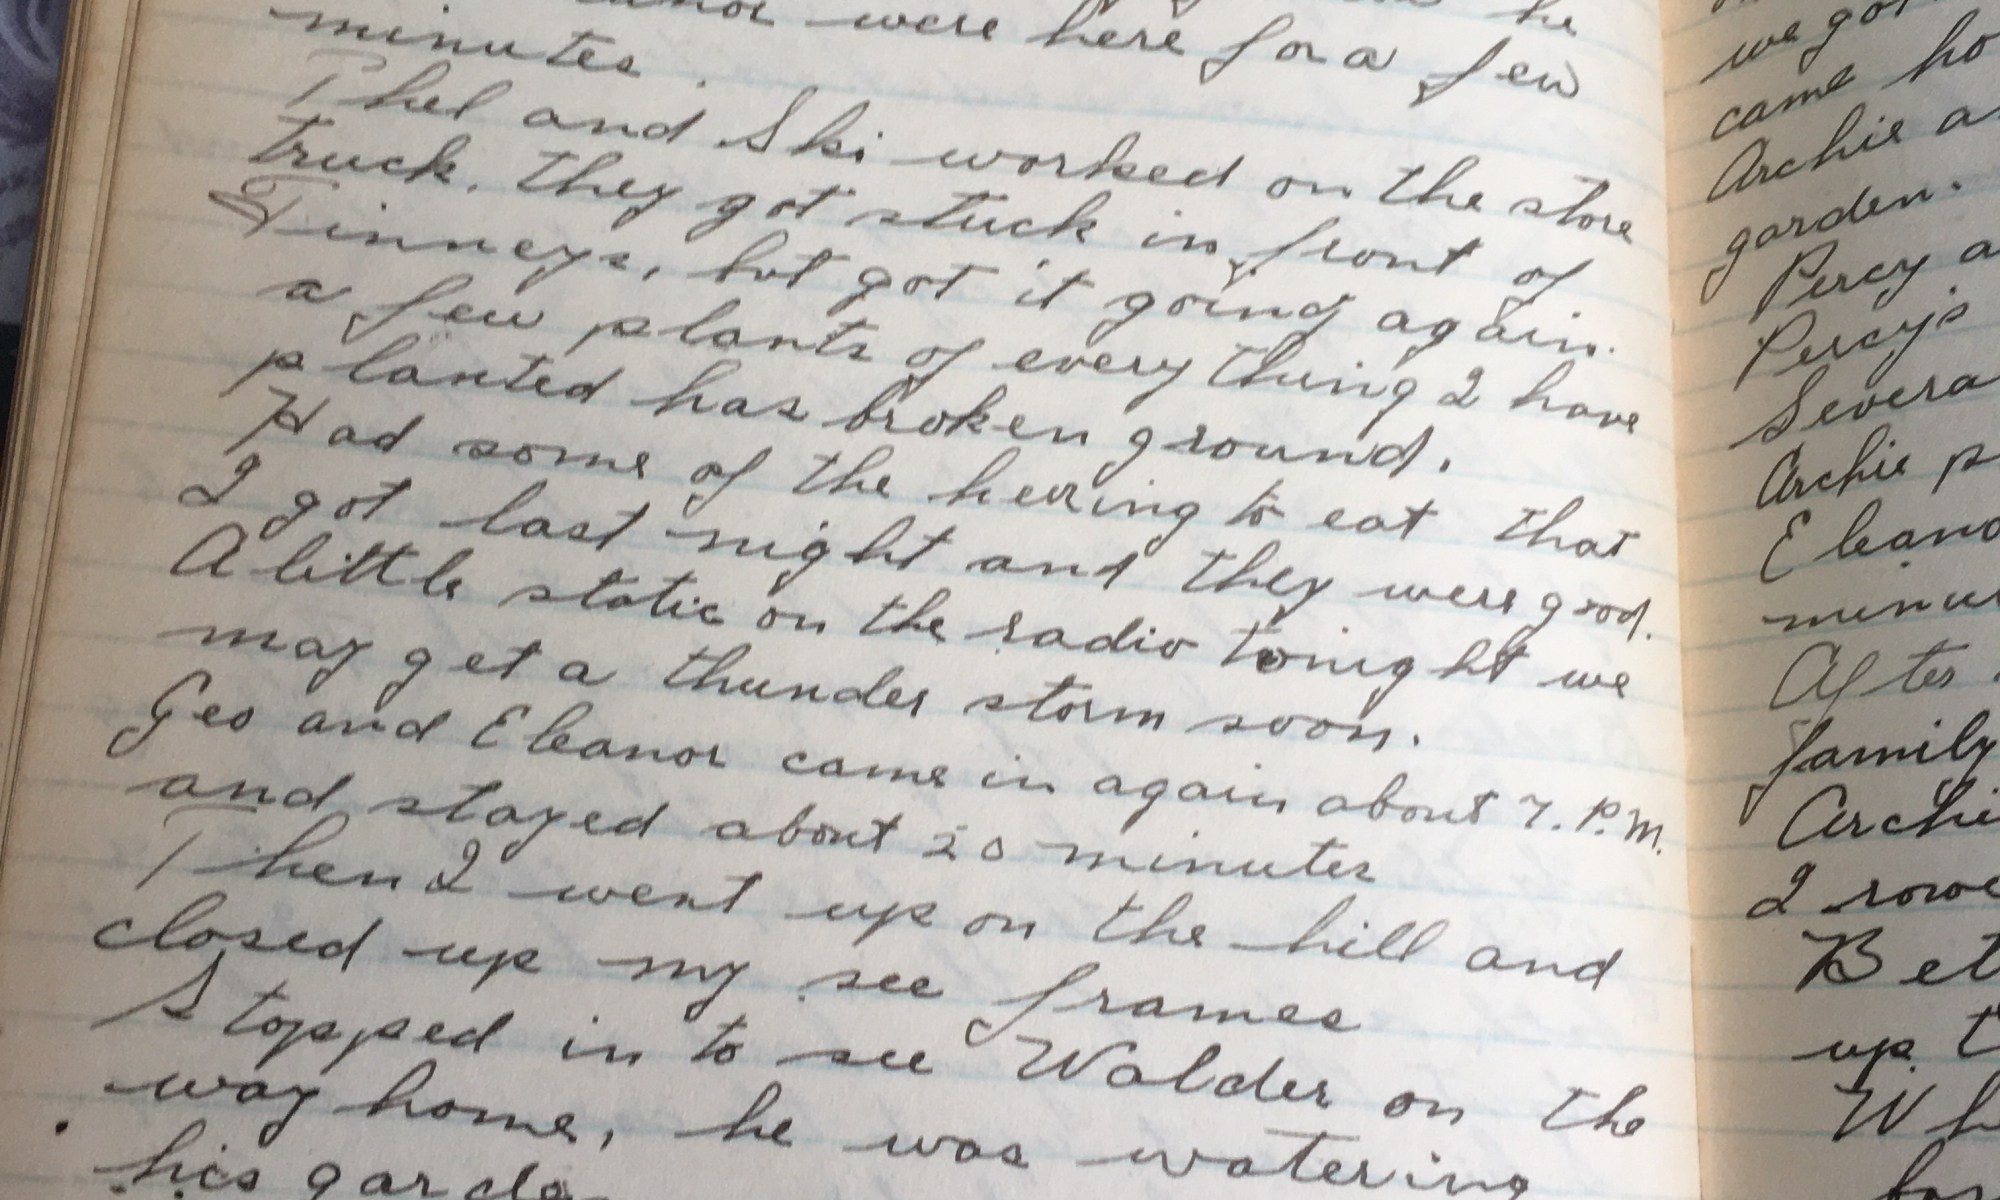 were here for a few
minutes.
Thel and Ski worked on the store
truck. They got stuck in front of
Tinneys, but got it going again.
a few plants of every thing I have
planted has broken ground.
Had some of the herring to eat that
I got last night and they were good.
A little static on the radio tonight we
may get a thunder storm soon.
Geo and Eleanor came in again about 7. P.M.
and stayed about 20 minutes
Then I went up on the hill and
closed up my see frames
Stopped in to see Walder on the
way home, he was watering
his
we
came
Archie
garden.
Percy
Percy's
Archie
After
family
2 rows
up